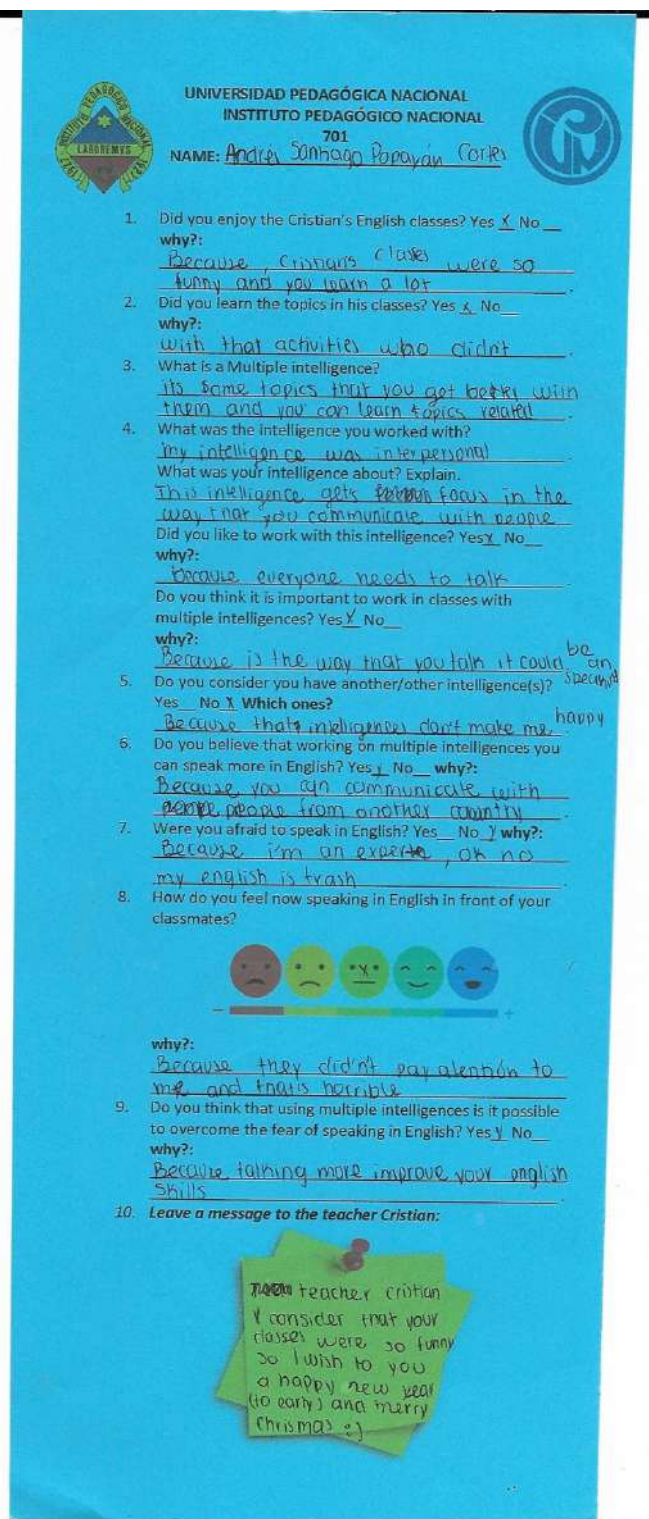 UNIVERSIDAD PEDAGÓGICA NACIONAL
INSTITUTO PEDAGÓGICO NACIONAL
701
NAME: Andrés Santiago Popayán Cortes
INSTITUTO PEDAGÓGICO NACIONAL
LABOREMVS
1927
1. Did you enjoy the Cristian's English classes? Yes X No __
why?:
Because, Cristian's classes were so
funny and you learn a lot.
2. Did you learn the topics in his classes? Yes x No__
why?:
with that activities who didnt.
3. What is a Multiple intelligence?
its some topics that you get better with
them and you can learn topics related.
4. What was the intelligence you worked with?
my intelligence was interpersonal
What was your intelligence about? Explain.
This intelligence gets focus in the
way that you communicate with people
Did you like to work with this intelligence? Yes x No__
why?:
because everyone needs to talk.
Do you think it is important to work in classes with
multiple intelligences? Yes X No__
why?:
Because is the way that you talk it could be an
5. Do you consider you have another/other intelligence(s)?
Yes__ No X Which ones?
Because that intelligences don't make me happy.
6. Do you believe that working on multiple intelligences you
can speak more in English? Yes x No__ why?:
Because you can communicate with
people from another country.
7. Were you afraid to speak in English? Yes__ No y why?:
Because i'm an experte, ok no
my english is trash.
8. How do you feel now speaking in English in front of your
classmates?
x
- +
why?:
Because they did'nt pay atentión to
me and thatis horrible
9. Do you think that using multiple intelligences is it possible
to overcome the fear of speaking in English? Yes y No__
why?:
Because talking more improve your english
skills.
10. Leave a message to the teacher Cristian:
teacher cristian
I consider that your
classes were so funny
so I wish to you
a happy new year
(to early) and merry
Chrismas :)